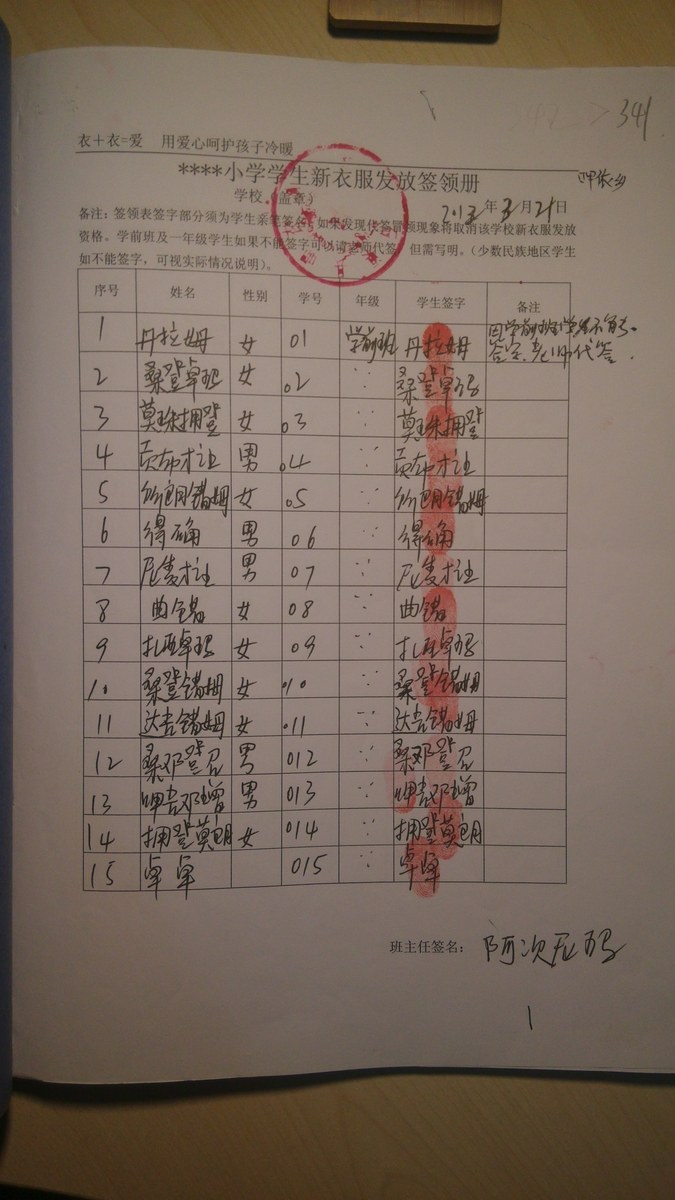 341
衣＋衣=爱 用爱心呵护孩子冷暖
****小学学生新衣服发放签领册
学校（盖章） 2013年3月21日
备注：签领表签字部分须为学生亲笔签名，如果发现代签冒领现象将取消该学校新衣服发放
资格。学前班及一年级学生如果不能签字可以请老师代签，但需写明。（少数民族地区学生
如不能签字，可视实际情况说明）。
序号 姓名 性别 学号 年级 学生签字 备注
1 丹拉姆 女 01 学前班 丹拉姆 因学前班学生不能签字，老师代签.
2 桑登卓玛 女 02 桑登卓玛
3 莫珠拥登 女 03 莫珠拥登
4 贡布才让 男 04 贡布才让
5 女 05
6 得确 男 06 得确
7 尼麦才让 男 07 尼麦才让
8 曲错 女 08 曲错
9 扎西卓玛 女 09 扎西卓玛
10 桑登错姆 女 10 桑登错姆
11 达吉错姆 女 011 达吉错姆
12 桑邓登 男 012 桑邓登
13 呷吉邓增 男 013 呷吉邓增
14 拥登莫朗 女 014 拥登莫朗
15 卓卓 015 卓卓
班主任签名： 阿次尼玛
1